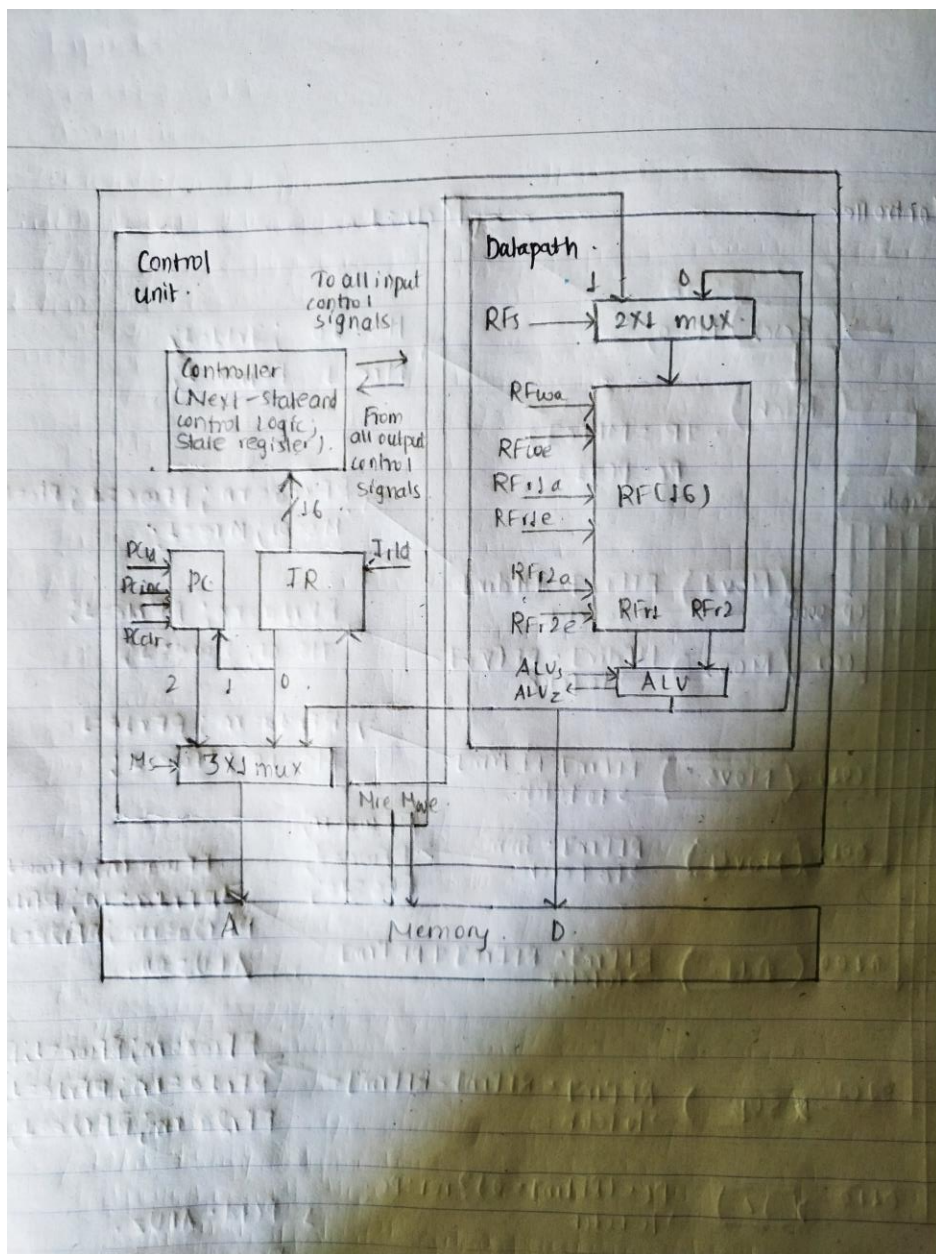 Control
unit.
To all input
control
signals
Controller
(Next-state and
control logic;
State register).
From
all output
control
signals
16
PCld
PCinc
PCclr.
PC
IR
Irld
2
1
0
Ms
3X1 mux
Mre Mwe
Datapath.
1
0
RFs
2X1 mux.
RFwa
RFwe
RFr1a
RFr1e
RFr2a
RFr2e
RF(16)
RFr1
RFr2
ALUs
ALUz
ALU
A
Memory.
D.